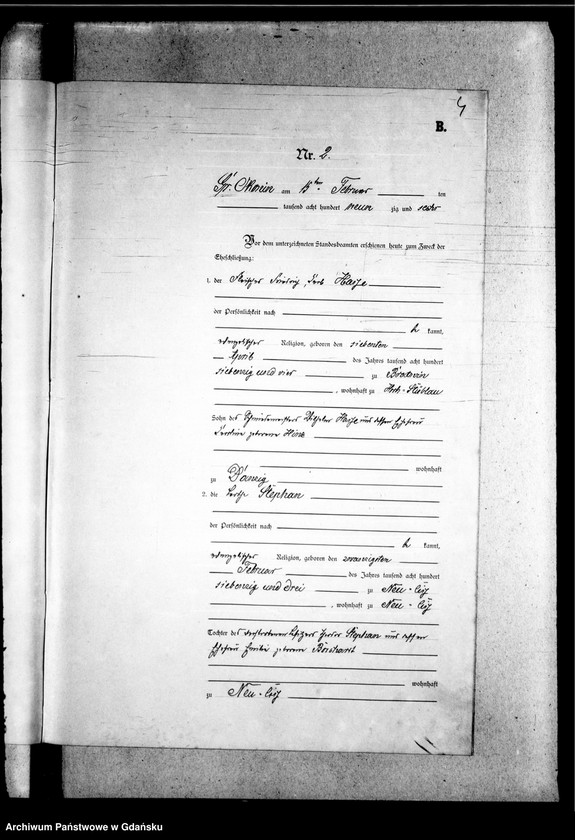 4
B.
Nr. 2.
am 15ten Februar ten
tausend acht hundert neun zig und
Vor dem unterzeichneten Standesbeamten erschienen heute zum Zweck der
Eheschließung:
1. der Friedrich Haase
der Persönlichkeit nach
kannt,
evangelischer Religion, geboren den siebenten
April des Jahres tausend acht hundert
siebenzig und vier zu
, wohnhaft zu
Sohn des Schmiedemeisters Wilhelm Haase und dessen Ehefrau
geborene
wohnhaft
zu Danzig
2. die Stephan
der Persönlichkeit nach
kannt,
evangelischer Religion, geboren den zwanzigsten
Februar des Jahres tausend acht hundert
siebenzig und drei zu Neu-
, wohnhaft zu Neu-
Tochter des verstorbenen Besitzers Stephan und dessen
Ehefrau Emilie geborene
wohnhaft
zu Neu-
Archiwum Państwowe w Gdańsku